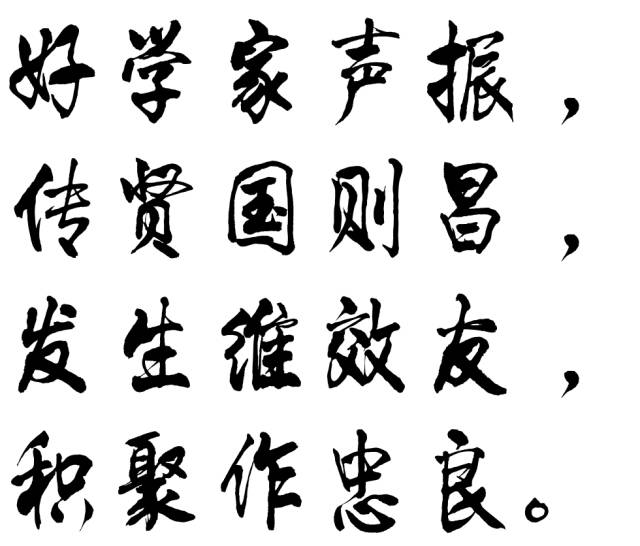 好学家声振，
传贤国则昌，
发生维效友，
积聚作忠良。